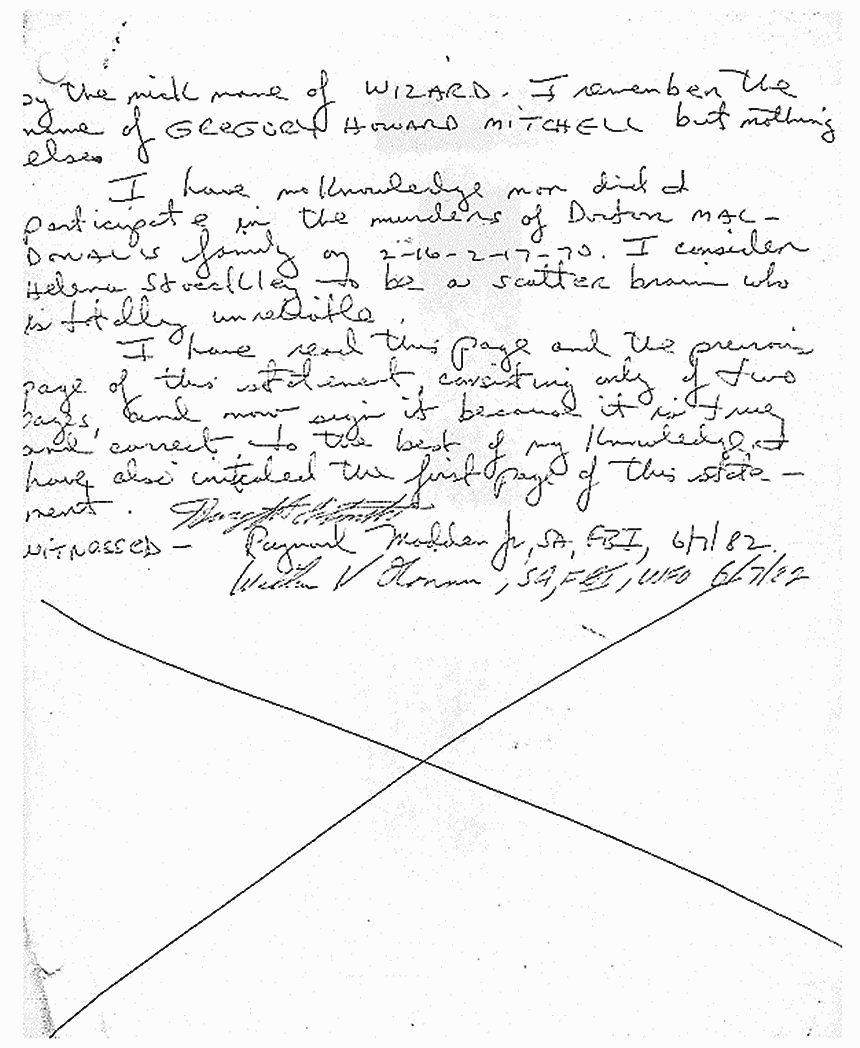 by the nick name of WIZARD. I remember the
name of GREGORY HOWARD MITCHELL but nothing
else.
I have no knowledge nor did I
participate in the murders of Doctor MAC-
DONALD's family on 2-16-2-17-70. I consider
Helena Stoeckley to be a scatter brain who
is totally unreliable.
I have read this page and the previous
page of this statement, consisting only of two
pages, and now sign it because it is true
and correct to the best of my knowledge. I
have also initialed the first page of this state-
ment.
WITNESSED - Raymond Madden Jr, SA, FBI, 6/7/82
V , SA, FBI, WFO 6/7/82